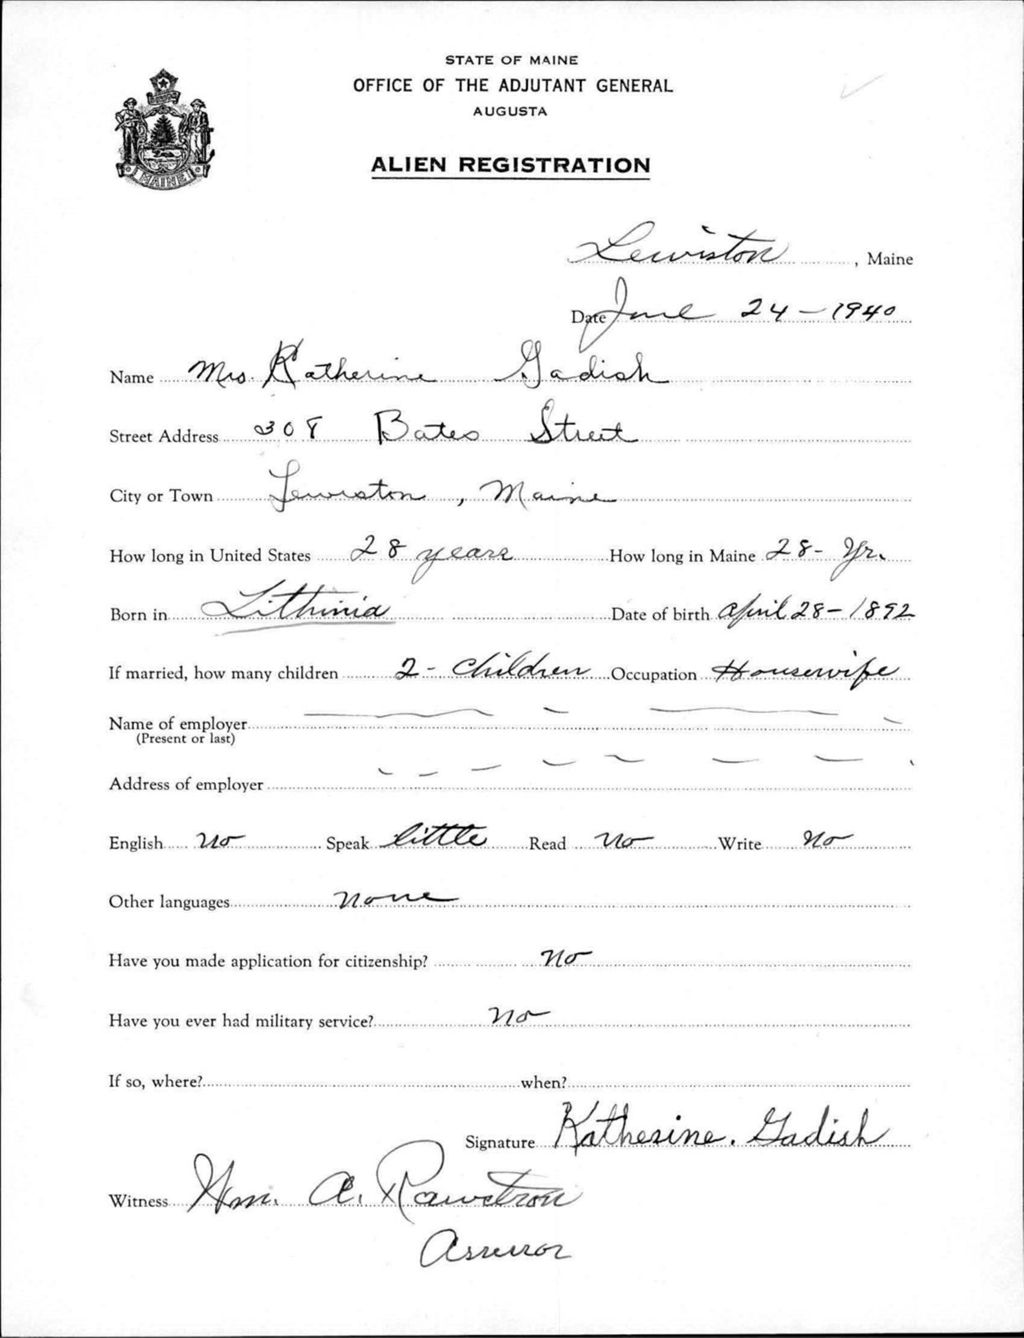 STATE OF MAINE
OFFICE OF THE ADJUTANT GENERAL
AUGUSTA
ALIEN REGISTRATION
MAINE
Lewiston, Maine
Date June 24-1940
Name Mrs. Katherine Gadish
Street Address 308 Bates Street
City or Town Lewiston, Maine
How long in United States 28 years How long in Maine 28- Yr.
Born in Lithinia Date of birth April 28-1892
If married, how many children 2 - Children Occupation Housewife
Name of employer
(Present or last)
Address of employer
English No Speak little Read No Write No
Other languages none
Have you made application for citizenship? No
Have you ever had military service? No
If so, where? when?
Signature Katherine. Gadish
Witness Wm. A. Rawstron
Assessor